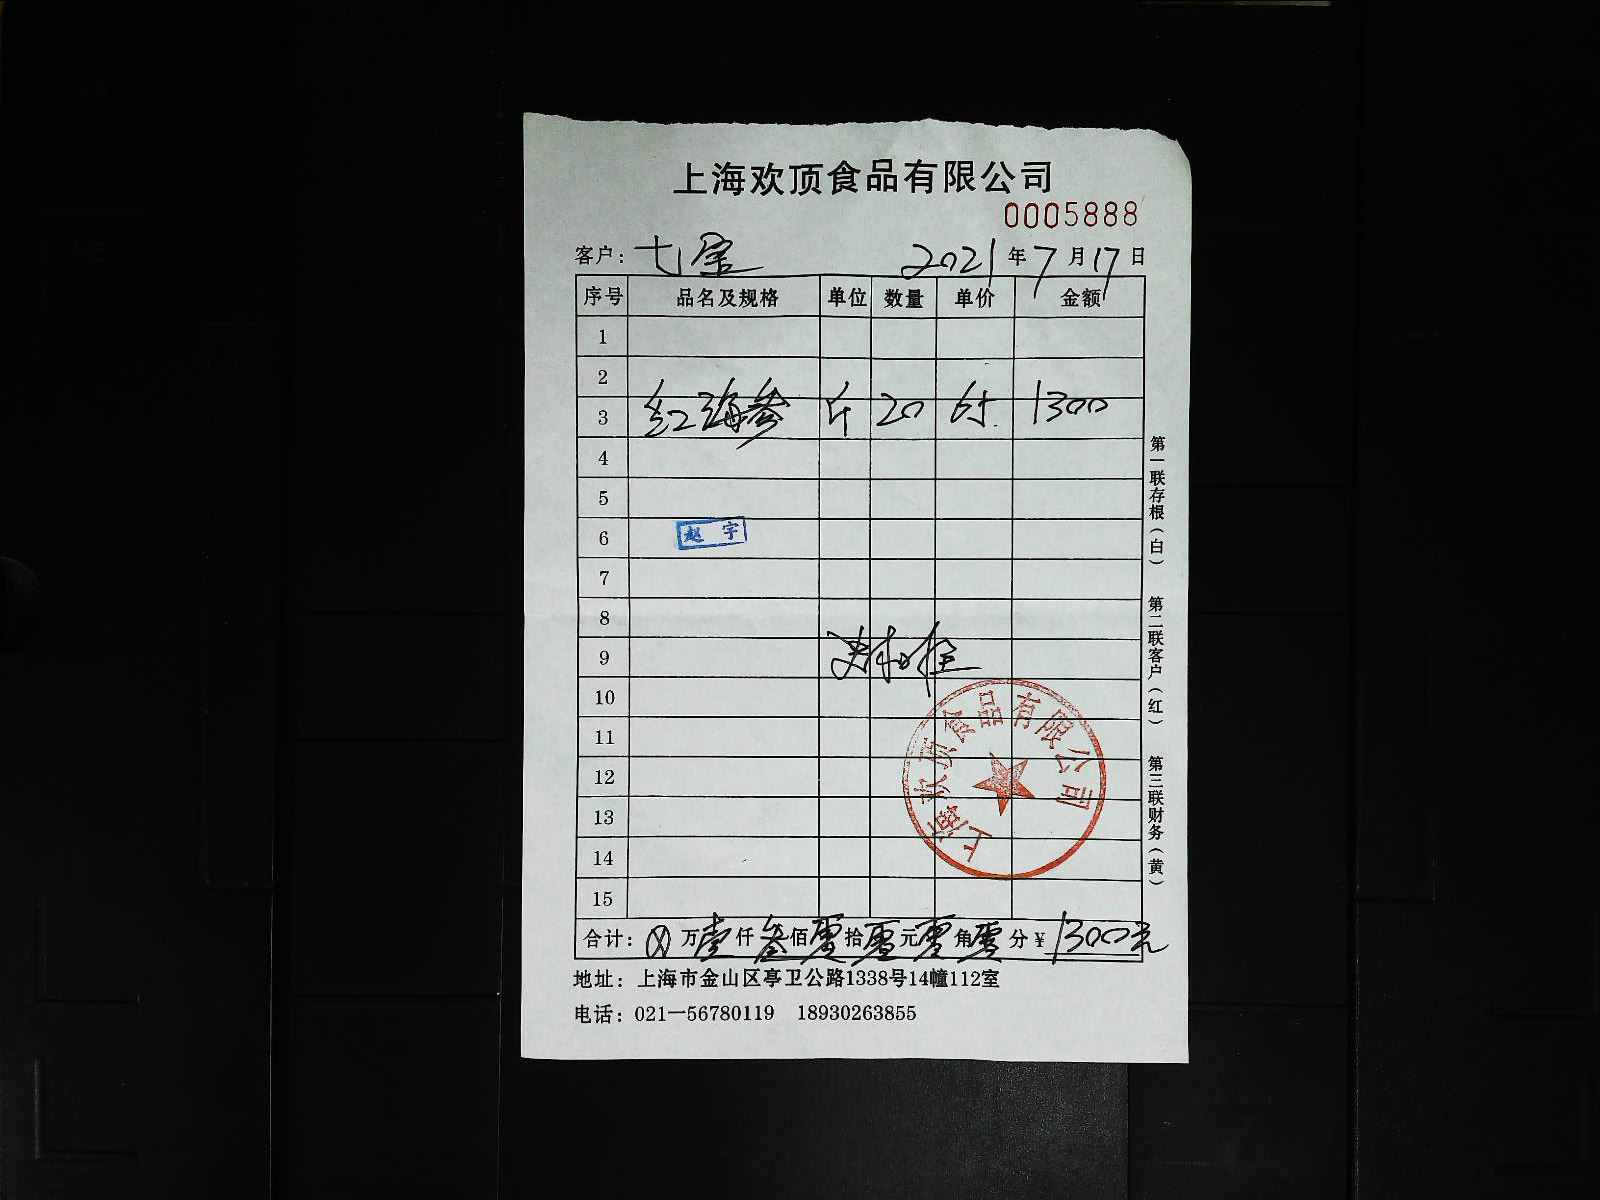 上海欢顶食品有限公司
0005888
客户：七宝 2021年7月17日
序号 品名及规格 单位 数量 单价 金额
1
2
3 红海参 斤 20 65 1300
4
5
6 赵宇
7
8
9
10
11
12
13
14
15
上海欢顶食品有限公司
合计：⊗万壹仟叁佰零拾零元零角零分¥1300元
地址：上海市金山区亭卫公路1338号14幢112室
电话：021—56780119 18930263855
第一联存根（白）
第二联客户（红）
第三联财务（黄）